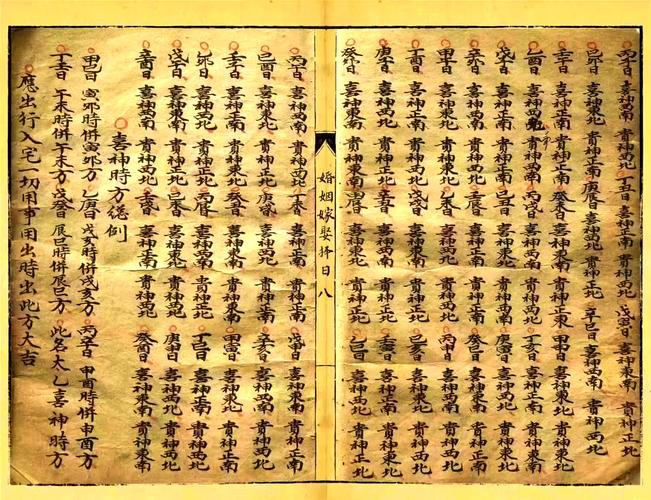 丙子日 喜神西南 貴神西北 丁丑日 喜神正南 貴神西北 戊寅日 喜神東南 貴神正北
己卯日 喜神東北 貴神正南 庚辰日 喜神西北 貴神正北 辛巳日 喜神西南 貴神西北
壬午日 喜神正南 貴神正東 癸未日 喜神東南 貴神正東 甲申日 喜神東北 貴神東北
乙酉日 喜神西北 貴神西南 丙戌日 喜神西南 貴神西北 丁亥日 喜神正南 貴神西北
戊子日 喜神東南 貴神正北 己丑日 喜神東北 貴神正北 庚寅日 喜神西北 貴神正南
辛卯日 喜神西南 貴神東北 壬辰日 喜神正南 貴神正東 癸巳日 喜神東南 貴神東南
甲午日 喜神東北 貴神東北 乙未日 喜神西北 貴神西南 丙申日 喜神西南 貴神西北
丁酉日 喜神正南 貴神西北 戊戌日 喜神東南 貴神正北 己亥日 喜神東北 貴神正北
庚子日 喜神西北 貴神正南 辛丑日 喜神西南 貴神東北 壬寅日 喜神正南 貴神正東
癸卯日 喜神東南 貴神東南 甲辰日 喜神東北 貴神東北 乙巳日 喜神西北 貴神正北
婚姻嫁娶擇日 八
丙午日 喜神西南 貴神西北 丁未日 喜神正南 貴神正北 戊申日 喜神東南 貴神正南
己酉日 喜神東北 貴神正北 庚戌日 喜神西北 貴神正南 辛亥日 喜神西南 貴神西北
壬子日 喜神正南 貴神正東 癸丑日 喜神東南 貴神正東 甲寅日 喜神東北 貴神東北
乙卯日 喜神西北 貴神正北 丙辰日 喜神西南 貴神西北 丁巳日 喜神正南 貴神正南
戊午日 喜神東南 貴神正北 己未日 喜神東北 貴神正北 庚申日 喜神西北 貴神西北
辛酉日 喜神西南 貴神西北 壬戌日 喜神正南 貴神正東 癸亥日 喜神東南 貴神東南
喜神時方總例
甲巳日 寅卯時併寅卯方 乙庚日 戌亥時併戌亥方 丙辛日 申酉時併申酉方
丁壬日 午未時併午未方 戊癸日 辰巳時併辰巳方 此名太乙喜神時方
應出行入宅一切用事用出時出此方大吉